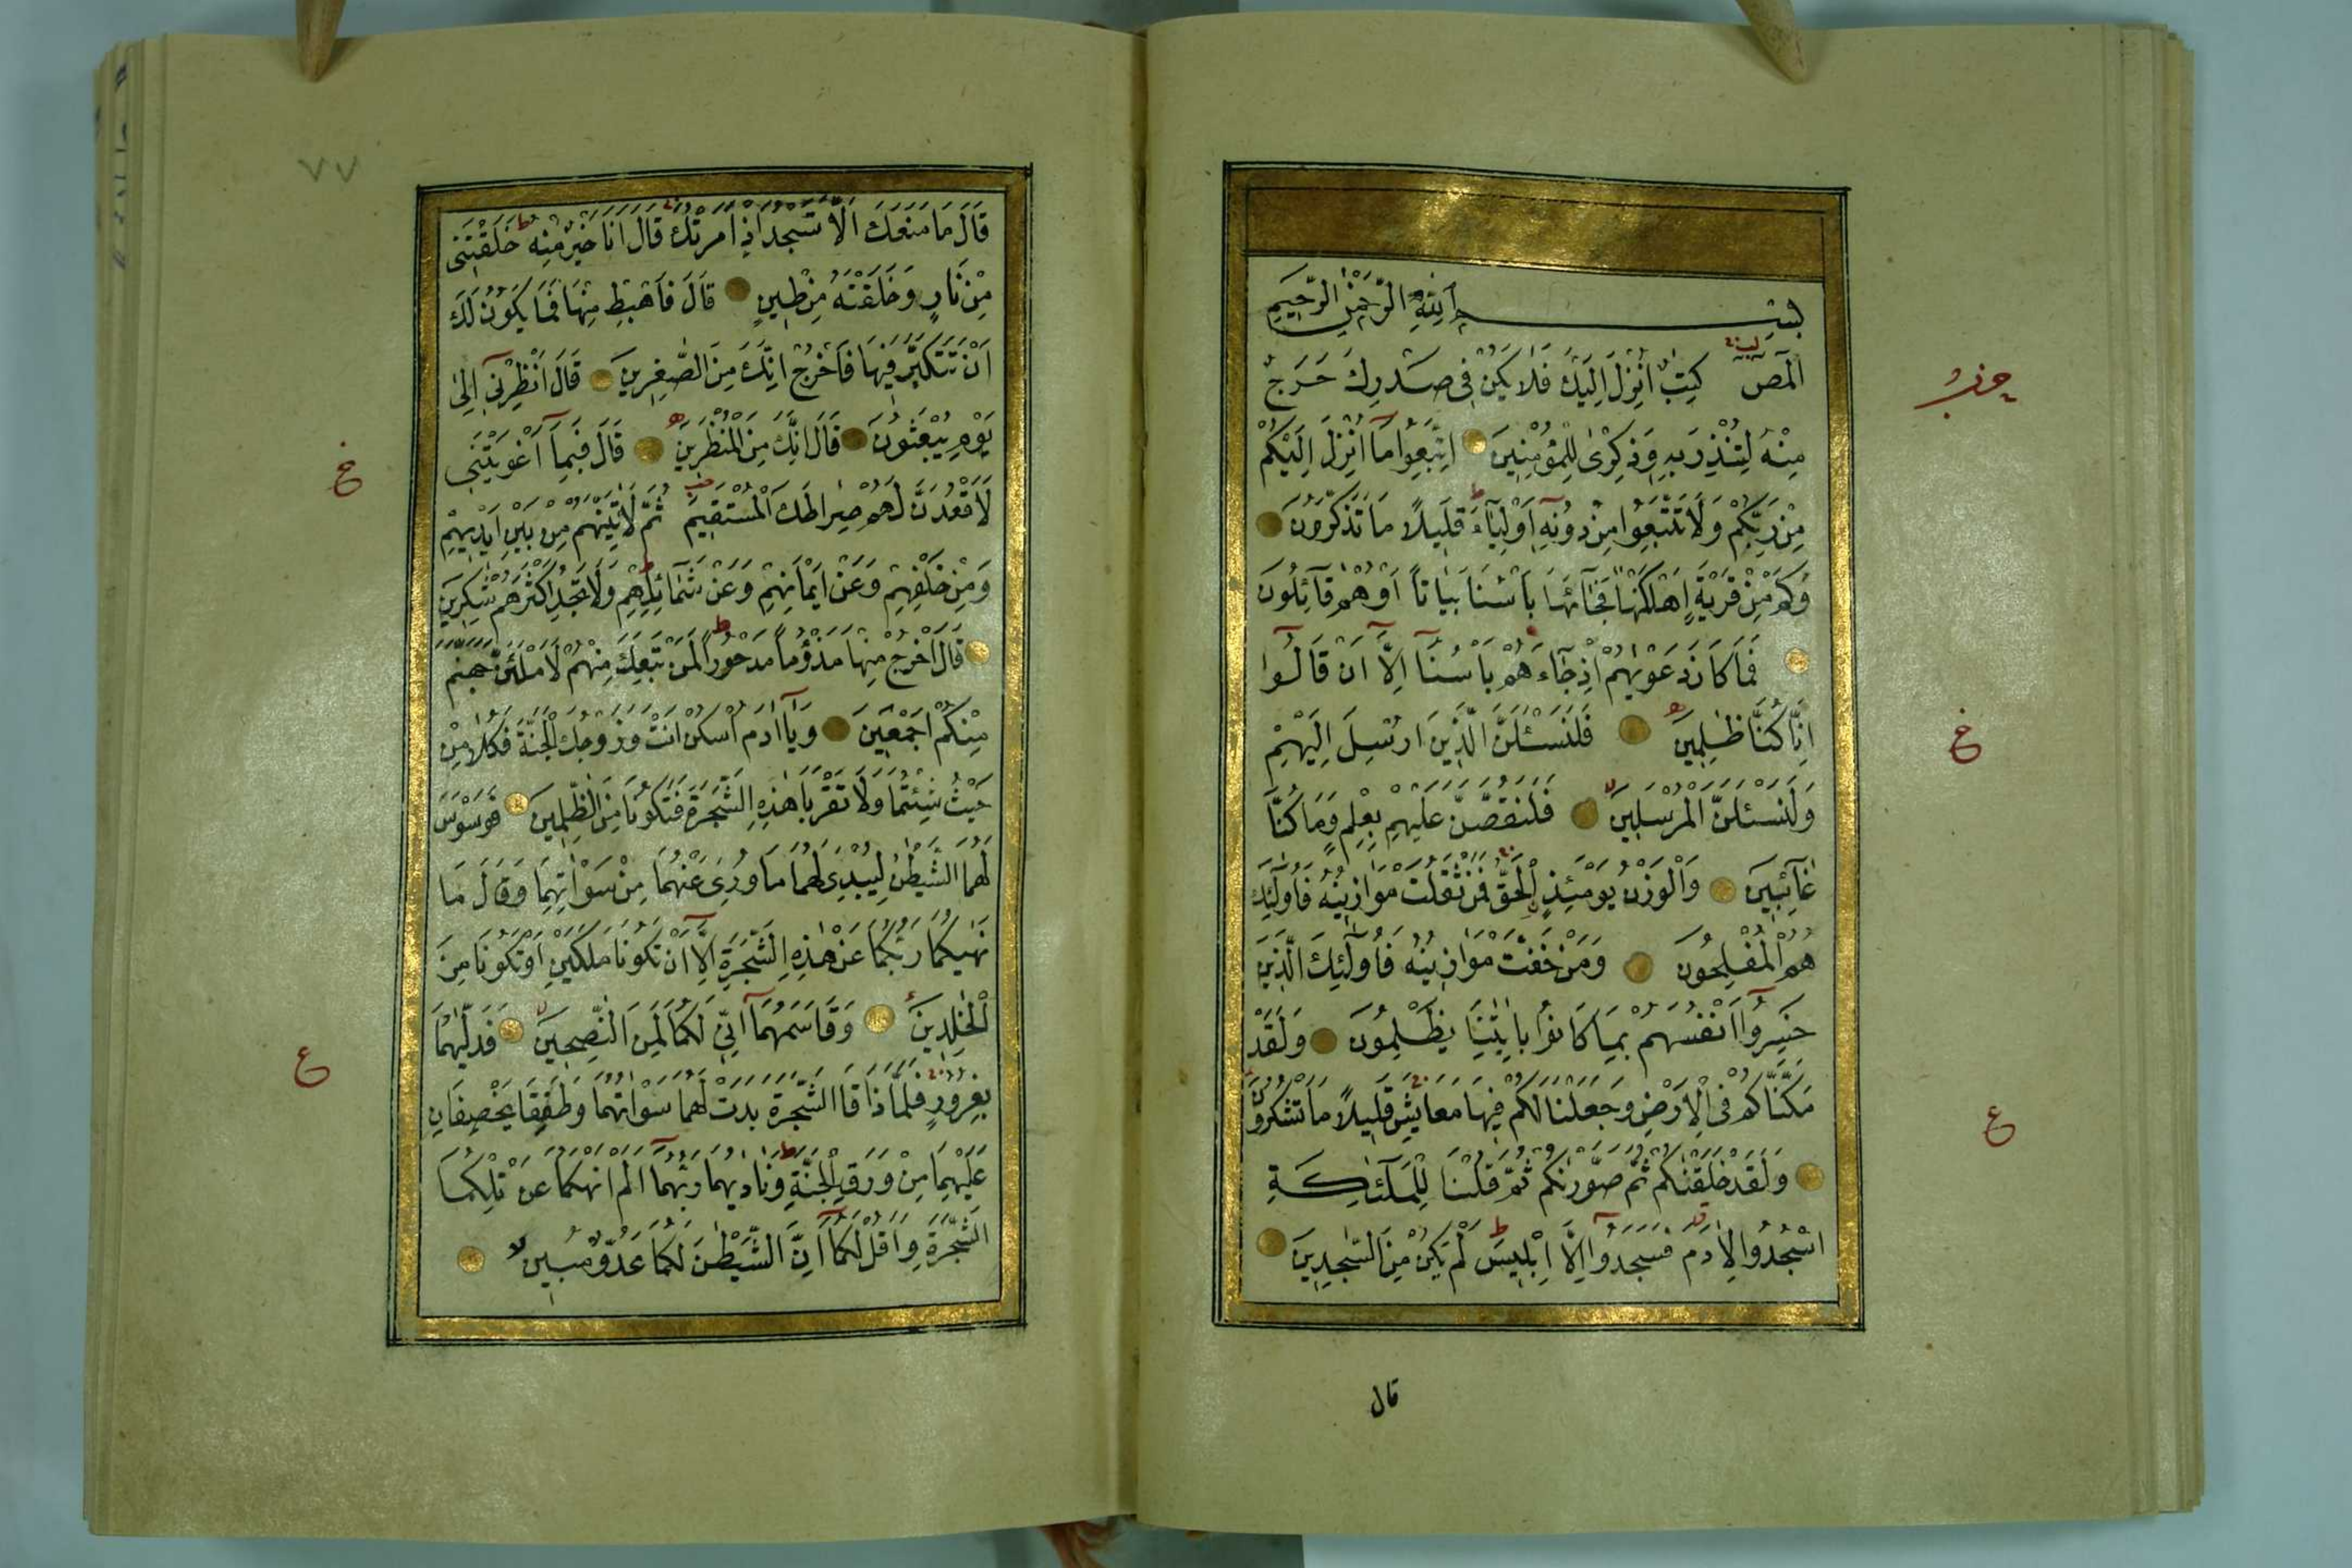 بِسْمِ اللهِ الرَّحْمٰنِ الرَّحِيمِ
الٓمٓصٓ كِتٰبٌ اُنْزِلَ اِلَيْكَ فَلَا يَكُنْ فِى صَدْرِكَ حَرَجٌ
مِنْهُ لِتُنْذِرَ بِهِ وَذِكْرٰى لِلْمُؤْمِنِينَ اِتَّبِعُوا مَٓا اُنْزِلَ اِلَيْكُمْ
مِنْ رَبِّكُمْ وَلَا تَتَّبِعُوا مِنْ دُونِهِٓ اَوْلِيَٓاءَ قَلِيلًا مَا تَذَكَّرُونَ
وَكَمْ مِنْ قَرْيَةٍ اَهْلَكْنٰهَا فَجَٓائَهَا بَاْسُنَا بَيَاتًا اَوْ هُمْ قَٓائِلُونَ
فَمَا كَانَ دَعْوٰيهُمْ اِذْ جَٓاءَهُمْ بَاْسُنَٓا اِلَّٓا اَنْ قَالُٓوا
اِنَّا كُنَّا ظٰلِمِينَ فَلَنَسْئَلَنَّ الَّذِينَ اُرْسِلَ اِلَيْهِمْ
وَلَنَسْئَلَنَّ الْمُرْسَلِينَ فَلَنَقُصَّنَّ عَلَيْهِمْ بِعِلْمٍ وَمَا كُنَّا
غَٓائِبِينَ وَالْوَزْنُ يَوْمَئِذٍ اۨلْحَقُّ فَمَنْ ثَقُلَتْ مَوَازِينُهُ فَاُولٰٓئِكَ
هُمُ الْمُفْلِحُونَ وَمَنْ خَفَّتْ مَوَازِينُهُ فَاُولٰٓئِكَ الَّذِينَ
خَسِرُٓوا اَنْفُسَهُمْ بِمَا كَانُوا بِاٰيٰتِنَا يَظْلِمُونَ وَلَقَدْ
مَكَّنَّاكُمْ فِى الْاَرْضِ وَجَعَلْنَا لَكُمْ فِيهَا مَعَايِشَ قَلِيلًا مَا تَشْكُرُونَ
وَلَقَدْ خَلَقْنٰكُمْ ثُمَّ صَوَّرْنٰكُمْ ثُمَّ قُلْنَا لِلْمَلٰٓئِكَةِ
اسْجُدُوا لِاٰدَمَ فَسَجَدُٓوا اِلَّٓا اِبْلِيسَ لَمْ يَكُنْ مِنَ السّٰجِدِينَ
قال
حزب
خ
ع
٧٧
قَالَ مَا مَنَعَكَ اَلَّا تَسْجُدَ اِذْ اَمَرْتُكَ قَالَ اَنَا خَيْرٌ مِنْهُ خَلَقْتَنِى
مِنْ نَارٍ وَخَلَقْتَهُ مِنْ طِينٍ قَالَ فَاهْبِطْ مِنْهَا فَمَا يَكُونُ لَكَ
اَنْ تَتَكَبَّرَ فِيهَا فَاخْرُجْ اِنَّكَ مِنَ الصّٰغِرِينَ قَالَ اَنْظِرْنِٓى اِلٰى
يَوْمِ يُبْعَثُونَ قَالَ اِنَّكَ مِنَ الْمُنْظَرِينَ قَالَ فَبِمَٓا اَغْوَيْتَنِى
لَاَقْعُدَنَّ لَهُمْ صِرَاطَكَ الْمُسْتَقِيمَ ثُمَّ لَاٰتِيَنَّهُمْ مِنْ بَيْنِ اَيْدِيهِمْ
وَمِنْ خَلْفِهِمْ وَعَنْ اَيْمَانِهِمْ وَعَنْ شَمَٓائِلِهِمْ وَلَا تَجِدُ اَكْثَرَهُمْ شٰكِرِينَ
قَالَ اخْرُجْ مِنْهَا مَذْؤُمًا مَدْحُورًا لَمَنْ تَبِعَكَ مِنْهُمْ لَاَمْلَئَنَّ جَهَنَّمَ
مِنْكُمْ اَجْمَعِينَ وَيَٓا اٰدَمُ اسْكُنْ اَنْتَ وَزَوْجُكَ الْجَنَّةَ فَكُلَا مِنْ
حَيْثُ شِئْتُمَا وَلَا تَقْرَبَا هٰذِهِ الشَّجَرَةَ فَتَكُونَا مِنَ الظّٰلِمِينَ فَوَسْوَسَ
لَهُمَا الشَّيْطٰنُ لِيُبْدِىَ لَهُمَا مَا وُرِىَ عَنْهُمَا مِنْ سَوْاٰتِهِمَا وَقَالَ مَا
نَهٰيكُمَا رَبُّكُمَا عَنْ هٰذِهِ الشَّجَرَةِ اِلَّٓا اَنْ تَكُونَا مَلَكَيْنِ اَوْ تَكُونَا مِنَ
الْخٰلِدِينَ وَقَاسَمَهُمَٓا اِنِّى لَكُمَا لَمِنَ النّٰصِحِينَ فَدَلّٰيهُمَا
بِغُرُورٍ فَلَمَّا ذَاقَا الشَّجَرَةَ بَدَتْ لَهُمَا سَوْاٰتُهُمَا وَطَفِقَا يَخْصِفَانِ
عَلَيْهِمَا مِنْ وَرَقِ الْجَنَّةِ وَنَادٰيهُمَا رَبُّهُمَٓا اَلَمْ اَنْهَكُمَا عَنْ تِلْكُمَا
الشَّجَرَةِ وَاَقُلْ لَكُمَٓا اِنَّ الشَّيْطٰنَ لَكُمَا عَدُوٌّ مُبِينٌ
خ
ع